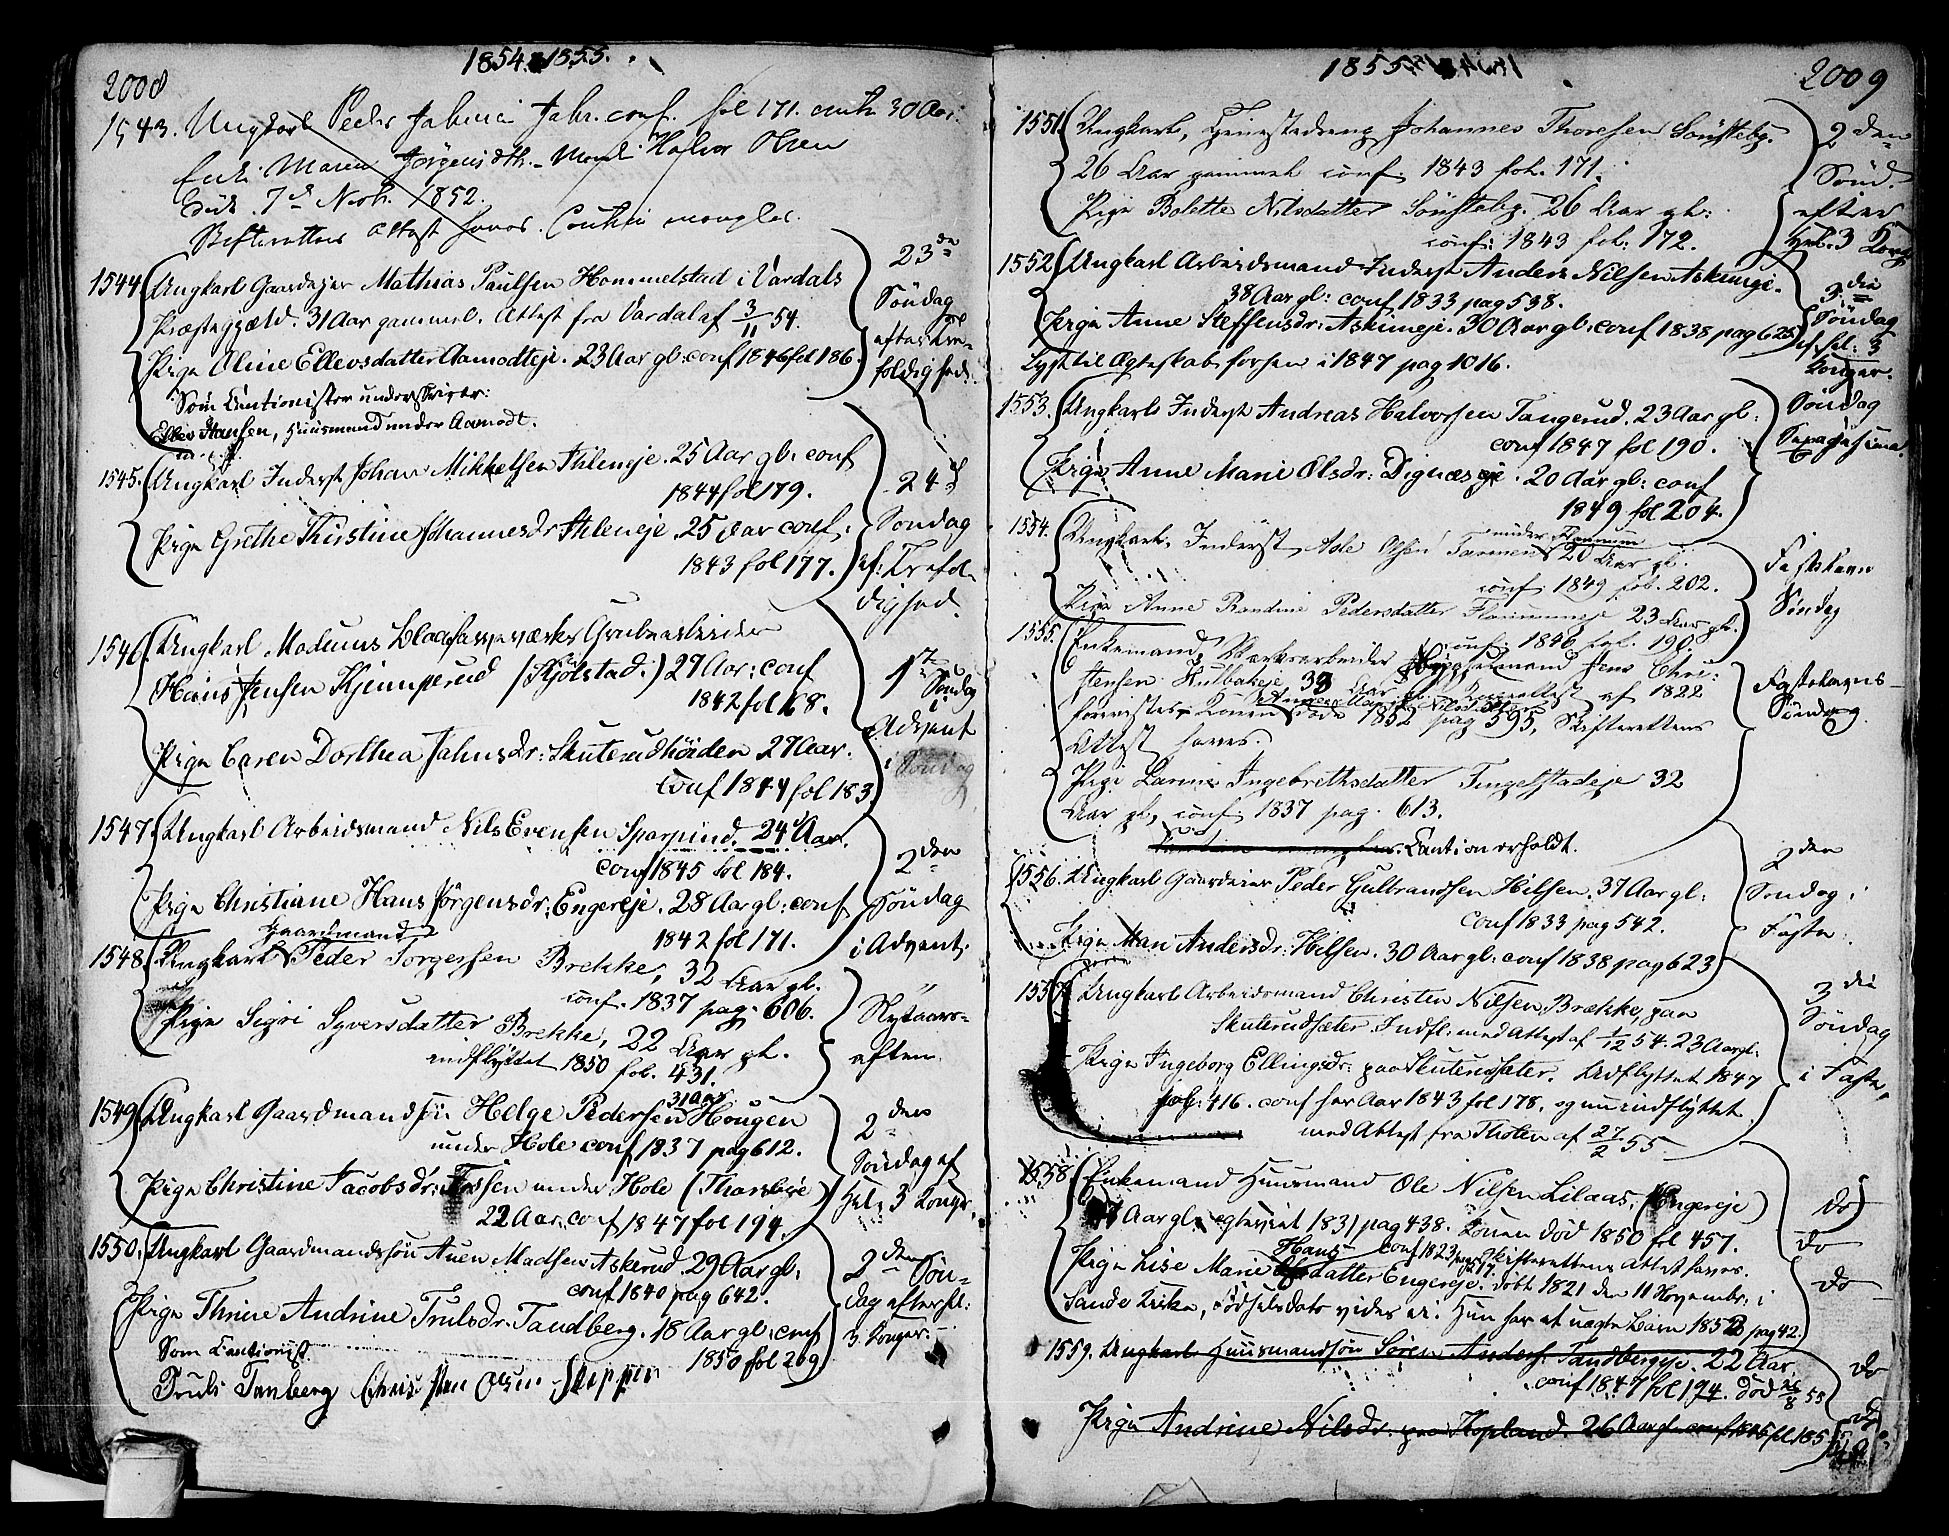 2008
1854. 1855.
1543. Ungkarl Peder Jahn. conf. fol 171. 30 Aar.
Enke Maren Jørgensdtr. Halvor Olsen
død. 7de Novb. 1852.
Skifterettens Attest haves. Caution mangler.
1544 Ungkarl Gaardejer Mathias Paulsen Hommelstad i Vardals
Præstegjæld. 31 Aar gammel. Attest fra Vardal af 3/11 54.
Pige Oline Ellevsdatter Aamodteje. 23 Aar gl: conf 1846 fol 186.
23de Søndag efter Trefoldighed.
Som Cautionister underskriver:
Ellev Hansen, Huusmand under Aamodt.
1545. Ungkarl Inderst Johan Mikkelsen Ihleneje. 25 Aar gl: conf
1844 fol 179.
Pige Grethe Kirstine Johannesdr Ihleneje. 25 Aar conf:
1843 fol 177.
24d Søndag ef: Trefoldighed.
1546. Ungkarl Modums Blaafarveværks Grubearbeider
Hans Jensen Kjemperud (Kjølstad:) 27 Aar: conf
1842 fol 168.
Pige Caren Dorthea Jahnsdr: Skuterudhøiden 27 Aar.
conf 1844 fol 183
1ste Søndag i Advent
1547. Ungkarl Arbeidsmand Nils Evensen Sparpind. 24 Aar.
conf 1845 fol 184.
Pige Christiane Hans Jørgensdr: Engereje. 28 Aar gl: conf
1842 fol 171.
2den Søndag i Advent:
Gaardmand
1548. Ungkarl Peder Torgersen Brekke, 32 Aar gl.
conf. 1837 pag. 606.
Pige Sigri Syversdatter Brekke, 22 Aar gl.
indflyttet 1850 fol. 431.
Nytaarsaften.
31 Aar
1549. Ungkarl Gaardmandssøn Helge Pedersen Hougen
under Hole conf 1837 pag 612.
Pige Christine Jacobsdr: Fossen under Hole (Thorsbye)
22 Aar, conf 1847 fol 194.
2den Søndag ef Hel. 3 Konger.
1550. Ungkarl Gaardmandssøn Auen Madsen Askerud. 29 Aar gl:
conf 1840 pag 642.
Pige Thrine Andrine Trulsdr. Tandberg. 18 Aar gl: conf
1850 fol 209
2den Søndag efter hl: 3 Konger.
Som Cautionist.
Truls Tanberg Christian Olsen
2009
1855.
1551. Ungkarl, Tjenestedreng Johannes Thoresen Sønsteby.
26 Aar gammel conf. 1843 fol. 171.
Pige Bolette Nilsdatter Sønsteby. 26 Aar gl:
conf: 1843 fol: 172.
2den Sønd. efter Hel. 3 Kong
1552. Ungkarl Arbeidsmand Inderst Anders Nilsen Askimeje.
38 Aar gl: conf 1833 pag 538.
Pige Anne Steffensdr: Askimeje. 30 Aar gl: conf 1838 pag 625
Lyst til Ægteskab forhen i 1847 pag 1016.
3die Søndag ef hel: 3 Konger.
1553. Ungkarl Inderst Andreas Halvorsen Tangerud. 23 Aar gl.
conf 1847 fol 190.
Pige Anne Marie Olsdr: Dignæseje. 20 Aar gl: conf
1849 fol 204.
Søndag Septuagesima
1554. Ungkarl, Inderst, Ole Olsen under 20 Aar gl:
conf. 1849 fol. 202.
Pige Anne Randine Pedersdatter 23 Aar gl:
conf. 1846 fol. 190.
Fastelavn Søndag
1555. Enkemand, Værksarbeider Jens Christensen Hulbakeje 38 Aar gl. af 1822
forevistes. Konen døde 1852 pag 595, Skifterettens
Attest haves.
Pige Larine Ingebrethsdatter Tingelstadeje 32
Aar gl, conf. 1837 pag. 613.
Fastelavns Søndag.
Caution erholdt.
1556. Ungkarl Gaardeier Peder Gulbrandsen Hilsen. 37 Aar gl:
conf 1833 pag 542.
Pige Mari Andersdr: Hilsen. 30 Aar gl: conf 1838 pag 623
2den Søndag i Faste.
1557. Ungkarl Arbeidsmand Christen Nilsen Brekke, paa
Skuterudsæter. Indfl: med Attest af 1/12 54. 23 Aar gl:
Pige Ingeborg Ellingsdr: paa Skuterudsæter. Udflyttet 1847
pag: 416. conf her Aar 1843 fol 178. og nu indflyttet
med Attest fra Thoten af 27/2 55.
3die Søndag i Faste
1558. Enkemand Huusmand Ole Nilsen Lilaas, (Engereje)
Aar gl. egteviet 1831 pag 438. Konen død 1850 fl 457.
conf 1823 pag 517. Skifterettens Attest haves.
Pige Lise Marie Hansdatter Engereje. døbt 1821 den 11 Novembr: i
Sande Kirke, Fødselsdato vides ei. Hun har et uægte Barn 1852 pag 42.
do
do
do
1559. Ungkarl Huusmandssøn Søren Anders: Tandbergeje. 22 Aar
conf 1847 fol 194. død 26/8 55
Pige Andrine Nilsdr. paa Hopland. 26 Aar gl. conf 1845 fol 185
do